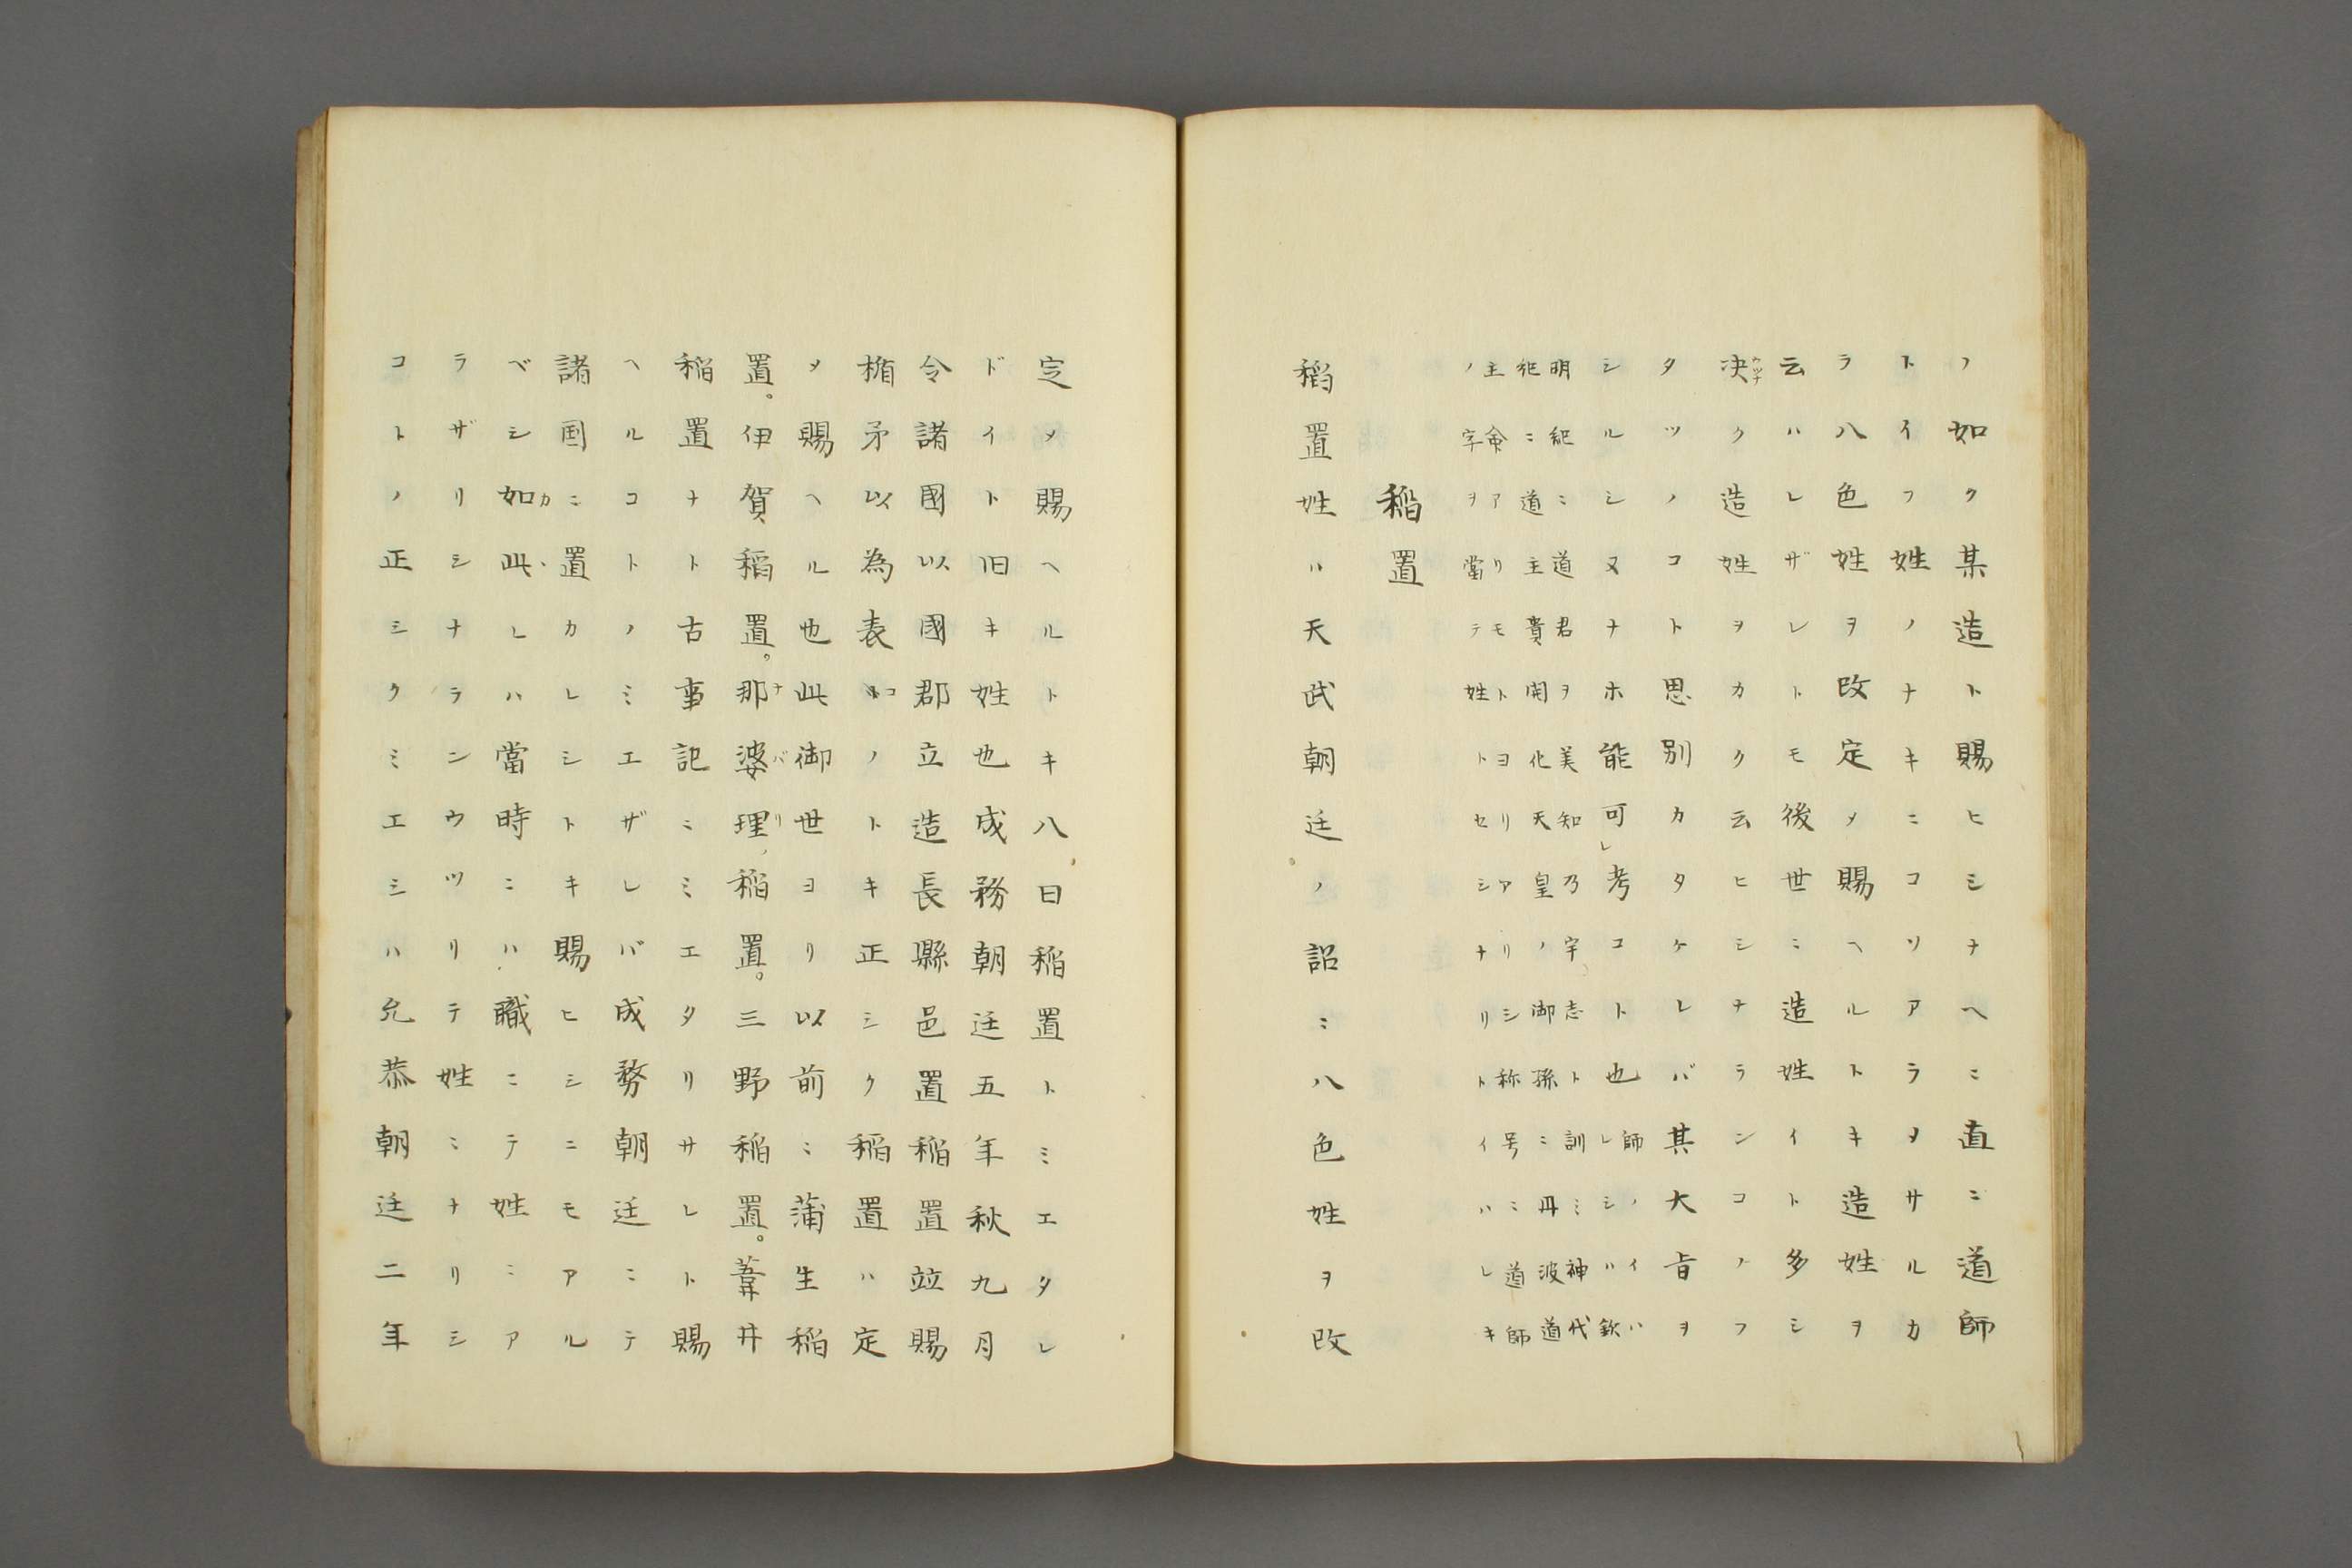 ノ如ク某造ト賜ヒシナヘニ直ニ道師
トイフ姓ノナキニコソアラヲサルカ
ラ八色姓ヲ改定メ賜ヘルトキ造姓ヲ
云ハレザレトモ後世ニ造姓イト多シ
决ク造姓ヲカク云ヒシナランコノフ
タツノコト思別カタケレバ其大旨ヲ
シルシヌナホ能可レ考コト也
師ノイハ
レシハ欽
明紀ニ道君ヲ美知乃宇志ト訓ミ神代
紀ニ道主貴開化天皇ノ御孫ニ丹波道
主命アリモトヨリアリシ称号ニ道師
ノ字ヲ當テ姓トセシナリトイハレキ
稲置
稻置姓ハ天武朝廷ノ詔ニ八色姓ヲ改
定メ賜ヘルトキ八曰稲置トミエタレ
ドイト旧キ姓也成務朝廷五年秋九月
令諸國以國郡立造長縣邑置稲置竝賜
楯矛以為表コノトキ正シク稲置ハ定
メ賜ヘル也此御世ヨリ以前ニ蒲生稲
置。伊賀稻置。那婆理ノ稲置。三野稲置。葦井
稲置ナト古事記ニミエタリサレト賜
ヘルコトノミエザレバ成務朝廷ニテ
諸国ニ置カレシトキ賜ヒシニモアル
ベシ如此レハ當時ニハ職ニテ姓ニア
ラザリシナランウツリテ姓ミナリシ
コトノ正シクミエシハ允恭朝廷二年